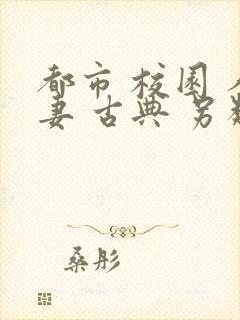 都市 校园
妻 古典 另
桑彤